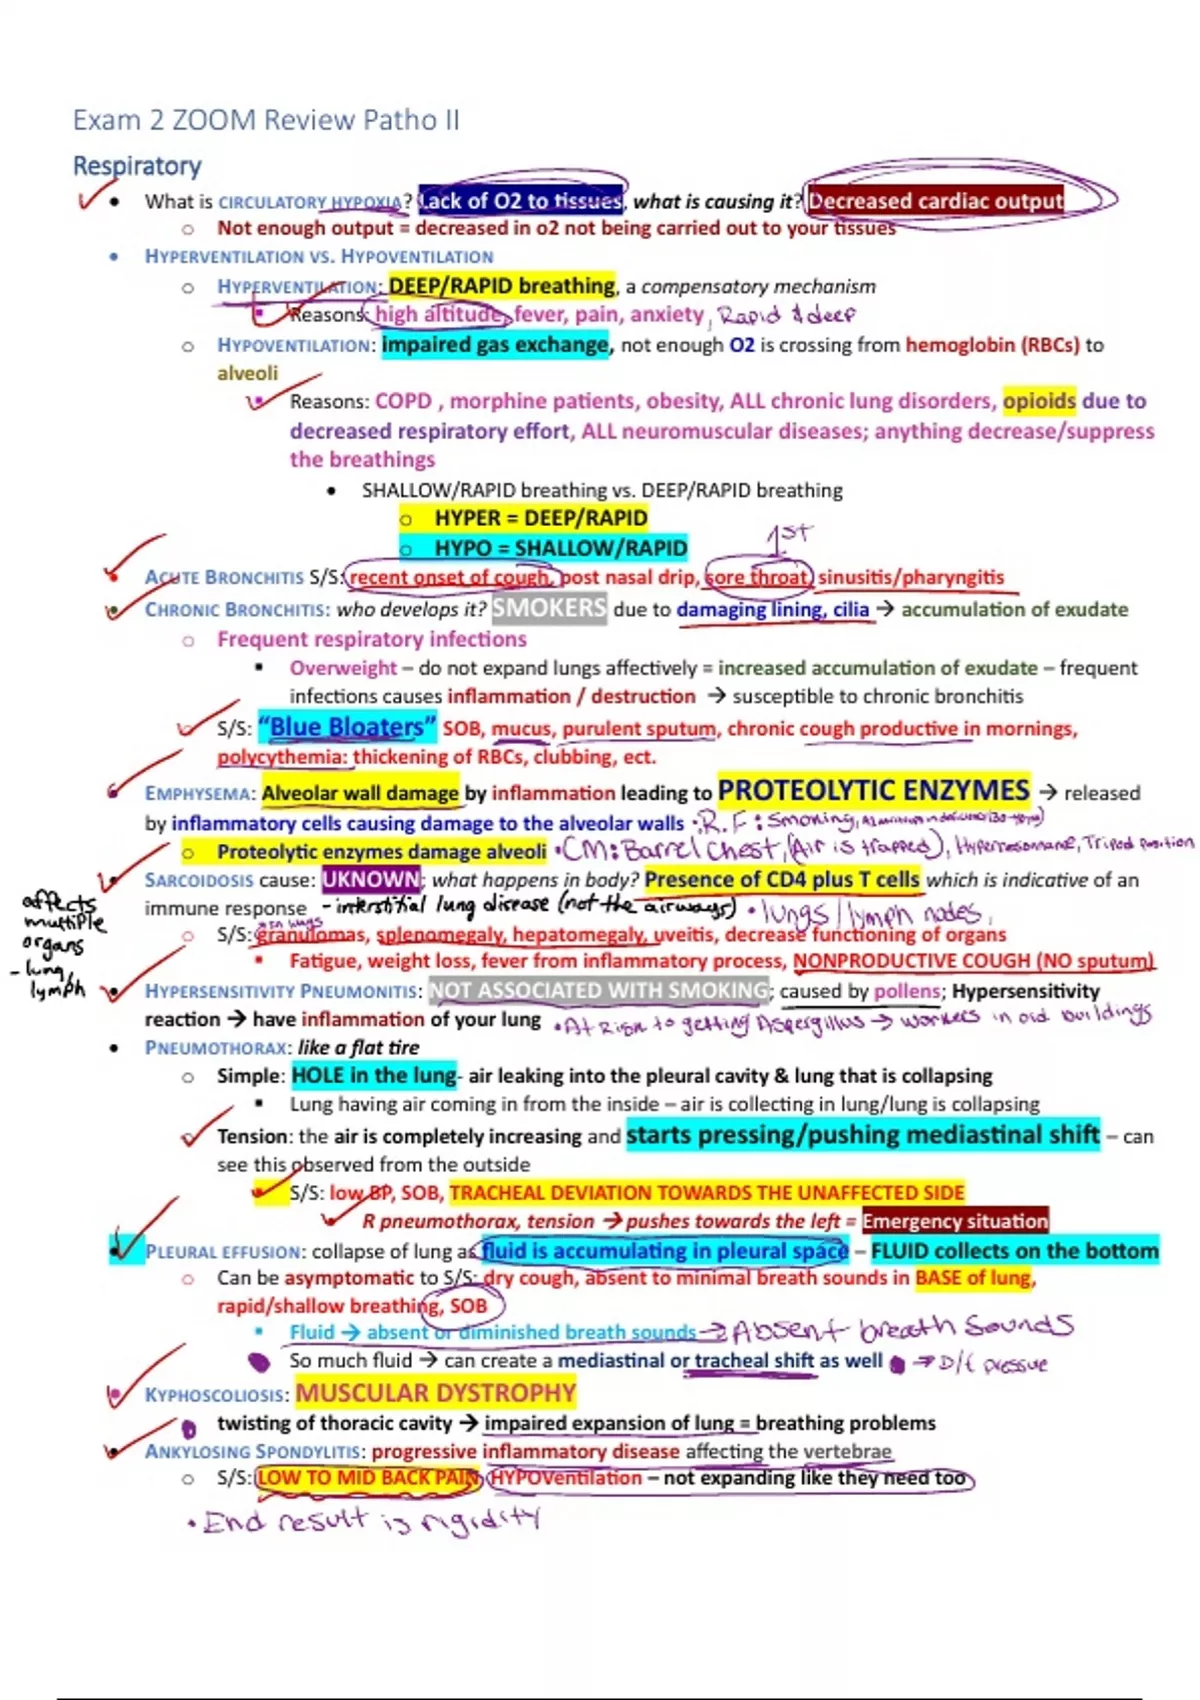 Exam 2 ZOOM Review Patho II
Respiratory
• What is CIRCULATORY HYPOXIA? Lack of O2 to tissues, what is causing it? Decreased cardiac output
o Not enough output = decreased in o2 not being carried out to your tissues
• HYPERVENTILATION VS. HYPOVENTILATION
o HYPERVENTILATION: DEEP/RAPID breathing, a compensatory mechanism
▪ Reasons: high altitude, fever, pain, anxiety, Rapid & deep
o HYPOVENTILATION: impaired gas exchange, not enough O2 is crossing from hemoglobin (RBCs) to
alveoli
▪ Reasons: COPD , morphine patients, obesity, ALL chronic lung disorders, opioids due to
decreased respiratory effort, ALL neuromuscular diseases; anything decrease/suppress
the breathings
• SHALLOW/RAPID breathing vs. DEEP/RAPID breathing
o HYPER = DEEP/RAPID
o HYPO = SHALLOW/RAPID
1st
• ACUTE BRONCHITIS S/S: recent onset of cough, post nasal drip, sore throat, sinusitis/pharyngitis
• CHRONIC BRONCHITIS: who develops it? SMOKERS due to damaging lining, cilia → accumulation of exudate
o Frequent respiratory infections
▪ Overweight – do not expand lungs affectively = increased accumulation of exudate – frequent
infections causes inflammation / destruction → susceptible to chronic bronchitis
o S/S: “Blue Bloaters” SOB, mucus, purulent sputum, chronic cough productive in mornings,
polycythemia: thickening of RBCs, clubbing, ect.
• EMPHYSEMA: Alveolar wall damage by inflammation leading to PROTEOLYTIC ENZYMES → released
by inflammatory cells causing damage to the alveolar walls • R.F: Smoking,
o Proteolytic enzymes damage alveoli • CM: Barrel Chest, (Air is trapped), Hyperresonnance, Tripod position
• SARCOIDOSIS cause: UKNOWN; what happens in body? Presence of CD4 plus T cells which is indicative of an
immune response - interstitial lung disease (not the airways) • lungs/lymph nodes,
affects
multiple
organs
- lung,
lymph
* in lungs
o S/S: granulomas, splenomegaly, hepatomegaly, uveitis, decrease functioning of organs
▪ Fatigue, weight loss, fever from inflammatory process, NONPRODUCTIVE COUGH (NO sputum)
• HYPERSENSITIVITY PNEUMONITIS: NOT ASSOCIATED WITH SMOKING; caused by pollens; Hypersensitivity
reaction → have inflammation of your lung • At Risk to getting Aspergillus → workers in old buildings
• PNEUMOTHORAX: like a flat tire
o Simple: HOLE in the lung- air leaking into the pleural cavity & lung that is collapsing
▪ Lung having air coming in from the inside – air is collecting in lung/lung is collapsing
o Tension: the air is completely increasing and starts pressing/pushing mediastinal shift – can
see this observed from the outside
▪ S/S: low BP, SOB, TRACHEAL DEVIATION TOWARDS THE UNAFFECTED SIDE
• R pneumothorax, tension → pushes towards the left = Emergency situation
• PLEURAL EFFUSION: collapse of lung as fluid is accumulating in pleural space – FLUID collects on the bottom
o Can be asymptomatic to S/S: dry cough, absent to minimal breath sounds in BASE of lung,
rapid/shallow breathing, SOB
▪ Fluid → absent or diminished breath sounds → Absent breath Sounds
▪ So much fluid → can create a mediastinal or tracheal shift as well → D/t pressure
• KYPHOSCOLIOSIS: MUSCULAR DYSTROPHY
o twisting of thoracic cavity → impaired expansion of lung = breathing problems
• ANKYLOSING SPONDYLITIS: progressive inflammatory disease affecting the vertebrae
o S/S: LOW TO MID BACK PAIN, HYPOventilation – not expanding like they need too
• End result is rigidity